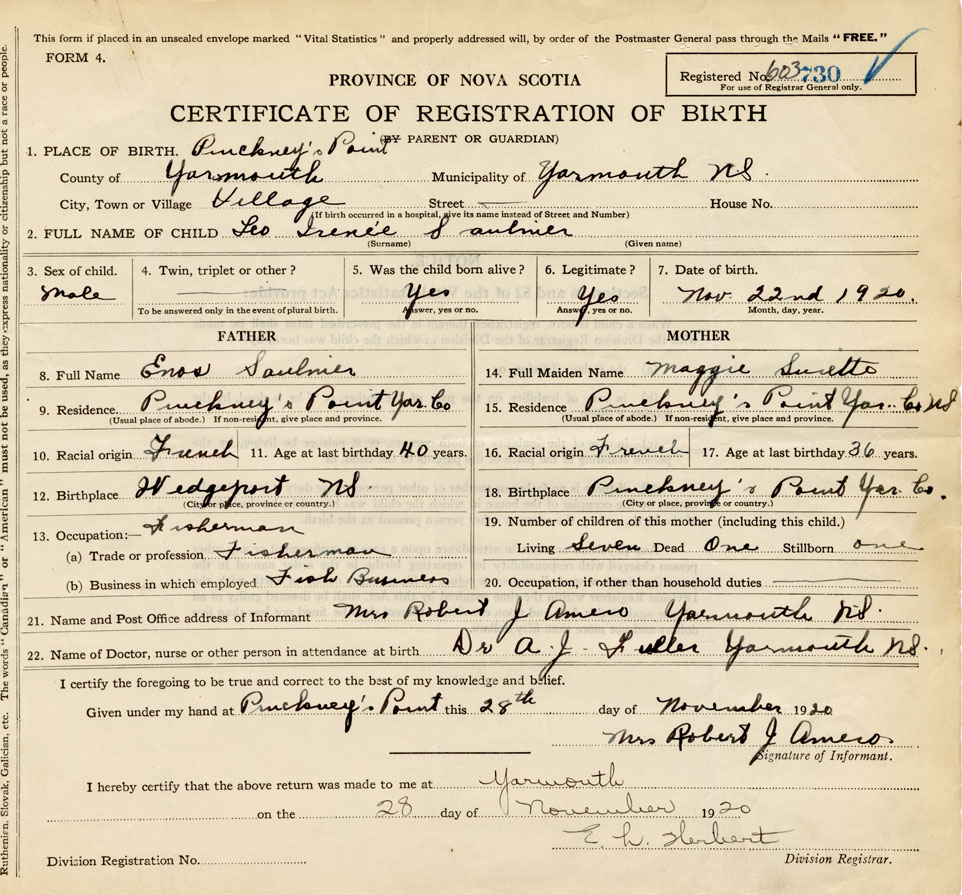 This form if placed in an unsealed envelope marked "Vital Statistics" and properly addressed will, by order of the Postmaster General pass through the Mails "FREE."
FORM 4.
Registered No. 603730
For use of Registrar General only.
PROVINCE OF NOVA SCOTIA
CERTIFICATE OF REGISTRATION OF BIRTH
(BY PARENT OR GUARDIAN)
1. PLACE OF BIRTH. Pinckney's Point
County of Yarmouth Municipality of Yarmouth NS.
City, Town or Village Village Street House No.
(If birth occurred in a hospital, give its name instead of Street and Number)
2. FULL NAME OF CHILD Leo Irenée Saulnier
(Surname) (Given name)
3. Sex of child. 4. Twin, triplet or other? 5. Was the child born alive? 6. Legitimate? 7. Date of birth.
Male Yes Yes Nov. 22nd 1920.
To be answered only in the event of plural birth. Answer, yes or no. Answer, yes or no. Month, day, year.
FATHER MOTHER
8. Full Name Enos Saulnier 14. Full Maiden Name Maggie Surette
9. Residence Pinckney's Point Yar. Co 15. Residence Pinckney's Point Yar. Co NS
(Usual place of abode.) If non-resident, give place and province. (Usual place of abode.) If non-resident, give place and province.
10. Racial origin French 11. Age at last birthday 40 years. 16. Racial origin French 17. Age at last birthday 36 years.
12. Birthplace Wedgeport NS. 18. Birthplace Pinckney's Point Yar. Co.
(City or place, province or country.) (City or place, province or country.)
13. Occupation:— Fisherman 19. Number of children of this mother (including this child.)
(a) Trade or profession Fisherman Living Seven Dead One Stillborn one
(b) Business in which employed Fish Business 20. Occupation, if other than household duties
21. Name and Post Office address of Informant Mrs Robert J Amero Yarmouth NS.
22. Name of Doctor, nurse or other person in attendance at birth Dr A. J. Fuller Yarmouth NS.
I certify the foregoing to be true and correct to the best of my knowledge and belief.
Given under my hand at Pinckney's Point this 28th day of November 1920
Mrs Robert J Amero
Signature of Informant.
I hereby certify that the above return was made to me at Yarmouth
on the 28 day of November 1920
E. h. Herbert
Division Registration No. Division Registrar.
Ruthenian, Slovak, Galician, etc. The words "Canadian" or "American" must not be used, as they express nationality or citizenship but not a race or people.